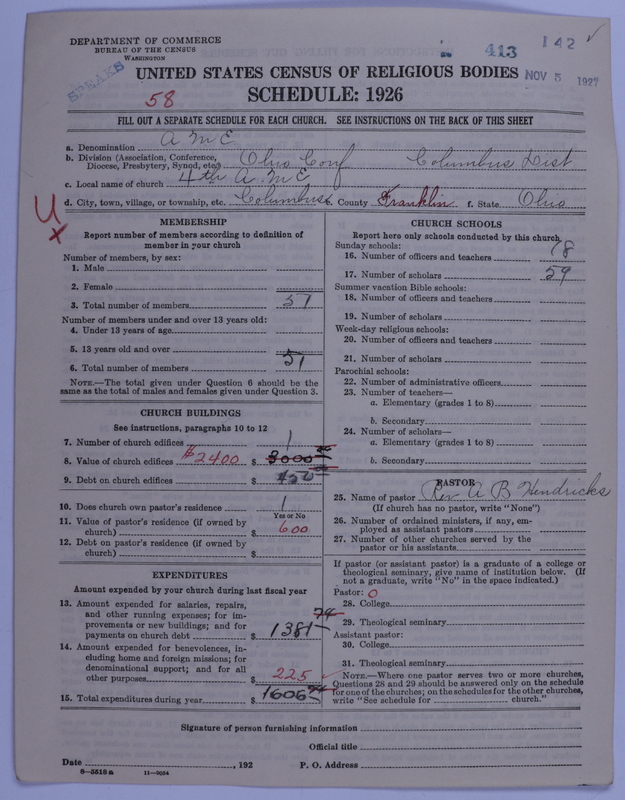 DEPARTMENT OF COMMERCE
BUREAU OF THE CENSUS
WASHINGTON
SPEAKS
413
142
NOV 5 1927
UNITED STATES CENSUS OF RELIGIOUS BODIES
58
SCHEDULE: 1926
FILL OUT A SEPARATE SCHEDULE FOR EACH CHURCH. SEE INSTRUCTIONS ON THE BACK OF THIS SHEET
a. Denomination A M E
b. Division (Association, Conference, Diocese, Presbytery, Synod, etc.) Ohio Conf Columbus Dist
c. Local name of church 4th A M E
d. City, town, village, or township, etc. Columbus e. County Franklin f. State Ohio
MEMBERSHIP
Report number of members according to definition of
member in your church
Number of members, by sex:
1. Male
2. Female
3. Total number of members 51
Number of members under and over 13 years old:
4. Under 13 years of age
5. 13 years old and over
6. Total number of members 51
NOTE.—The total given under Question 6 should be
same as the total of males and females given under Question 3.
CHURCH BUILDINGS
See instructions, paragraphs 10 to 12
7. Number of church edifices 1
8. Value of church edifices $2400 $ 3000
9. Debt on church edifices $
10. Does church own pastor's residence 1
Yes or No
11. Value of pastor's residence (if owned by
church) $ 600
12. Debt on pastor's residence (if owned by
church) $
EXPENDITURES
Amount expended by your church during last fiscal year
13. Amount expended for salaries, repairs,
and other running expenses; for im-
provements or new buildings; and for
payments on church debt $ 1381 74
14. Amount expended for benevolences, in-
cluding home and foreign missions; for
denominational support; and for all
other purposes $ 225
15. Total expenditures during year $ 1606 74
CHURCH SCHOOLS
Report here only schools conducted by this church
Sunday schools:
16. Number of officers and teachers 18
17. Number of scholars 59
Summer vacation Bible schools:
18. Number of officers and teachers
19. Number of scholars
Week-day religious schools:
20. Number of officers and teachers
21. Number of scholars
Parochial schools:
22. Number of administrative officers
23. Number of teachers—
a. Elementary (grades 1 to 8)
b. Secondary
24. Number of scholars—
a. Elementary (grades 1 to 8)
b. Secondary
PASTOR
25. Name of pastor Rev. A B Hendricks
(If church has no pastor, write "None")
26. Number of ordained ministers, if any, em-
ployed as assistant pastors
27. Number of other churches served by the
pastor or his assistants
If pastor (or assistant pastor) is a graduate of a college or
theological seminary, give name of institution below. (If
not a graduate, write "No" in the space indicated.)
Pastor: 0
28. College
29. Theological seminary
Assistant pastor:
30. College
31. Theological seminary
NOTE.—Where one pastor serves two or more churches,
Questions 28 and 29 should be answered only on the schedule
for one of the churches; on the schedules for the other churches,
write "See schedule for church."
Signature of person furnishing information
Official title
Date , 192 P. O. Address
8—5518a 11—9054